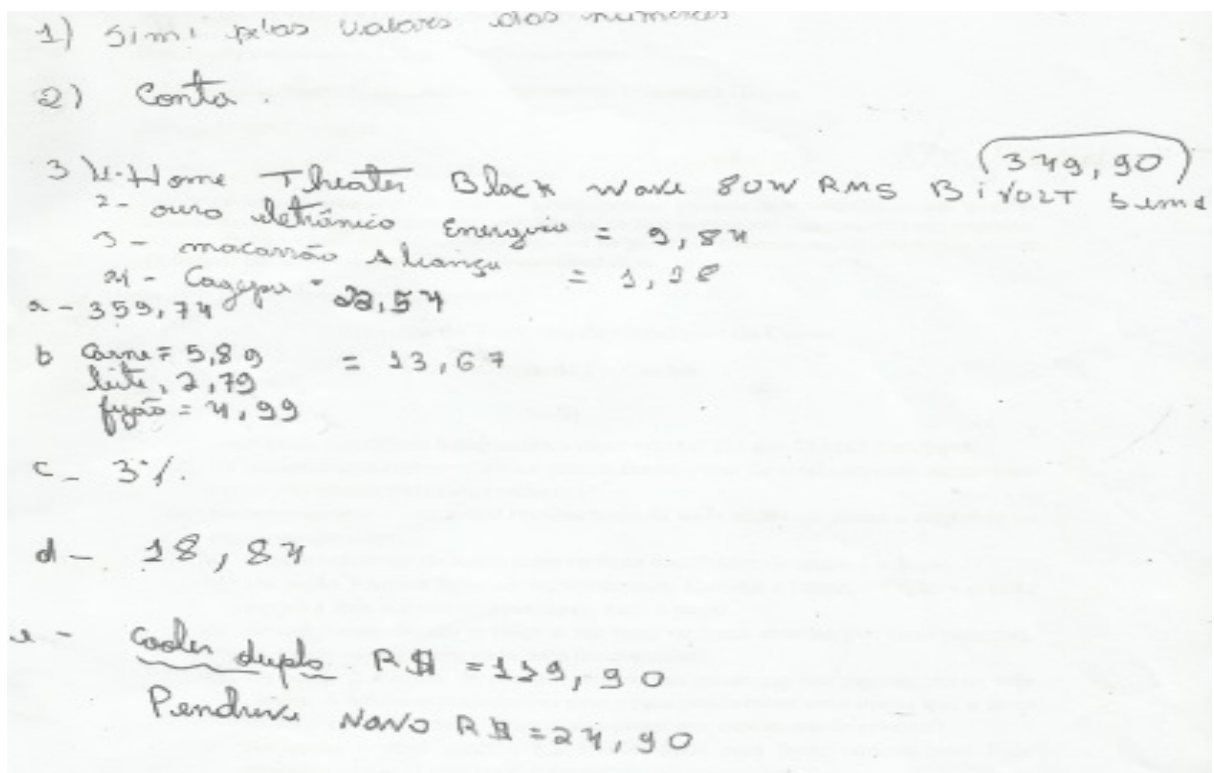 1) Simi pelos valores dos números
2) Conta.
349,90
3 1-Home Theater Black wave 80W RMS BiVOLT
2- ouro eletrônico Energisa = 9,84
3- macarrão Aliança = 1,28
4- Cagepa = 22,54
a-359,74
b Carne = 5,89 = 13,67
leite, 2,79
fejão = 4,99
c- 3%.
d- 18,84
e- cooler duplo R$ =139,90
Pendrive Novo R$ =24,90